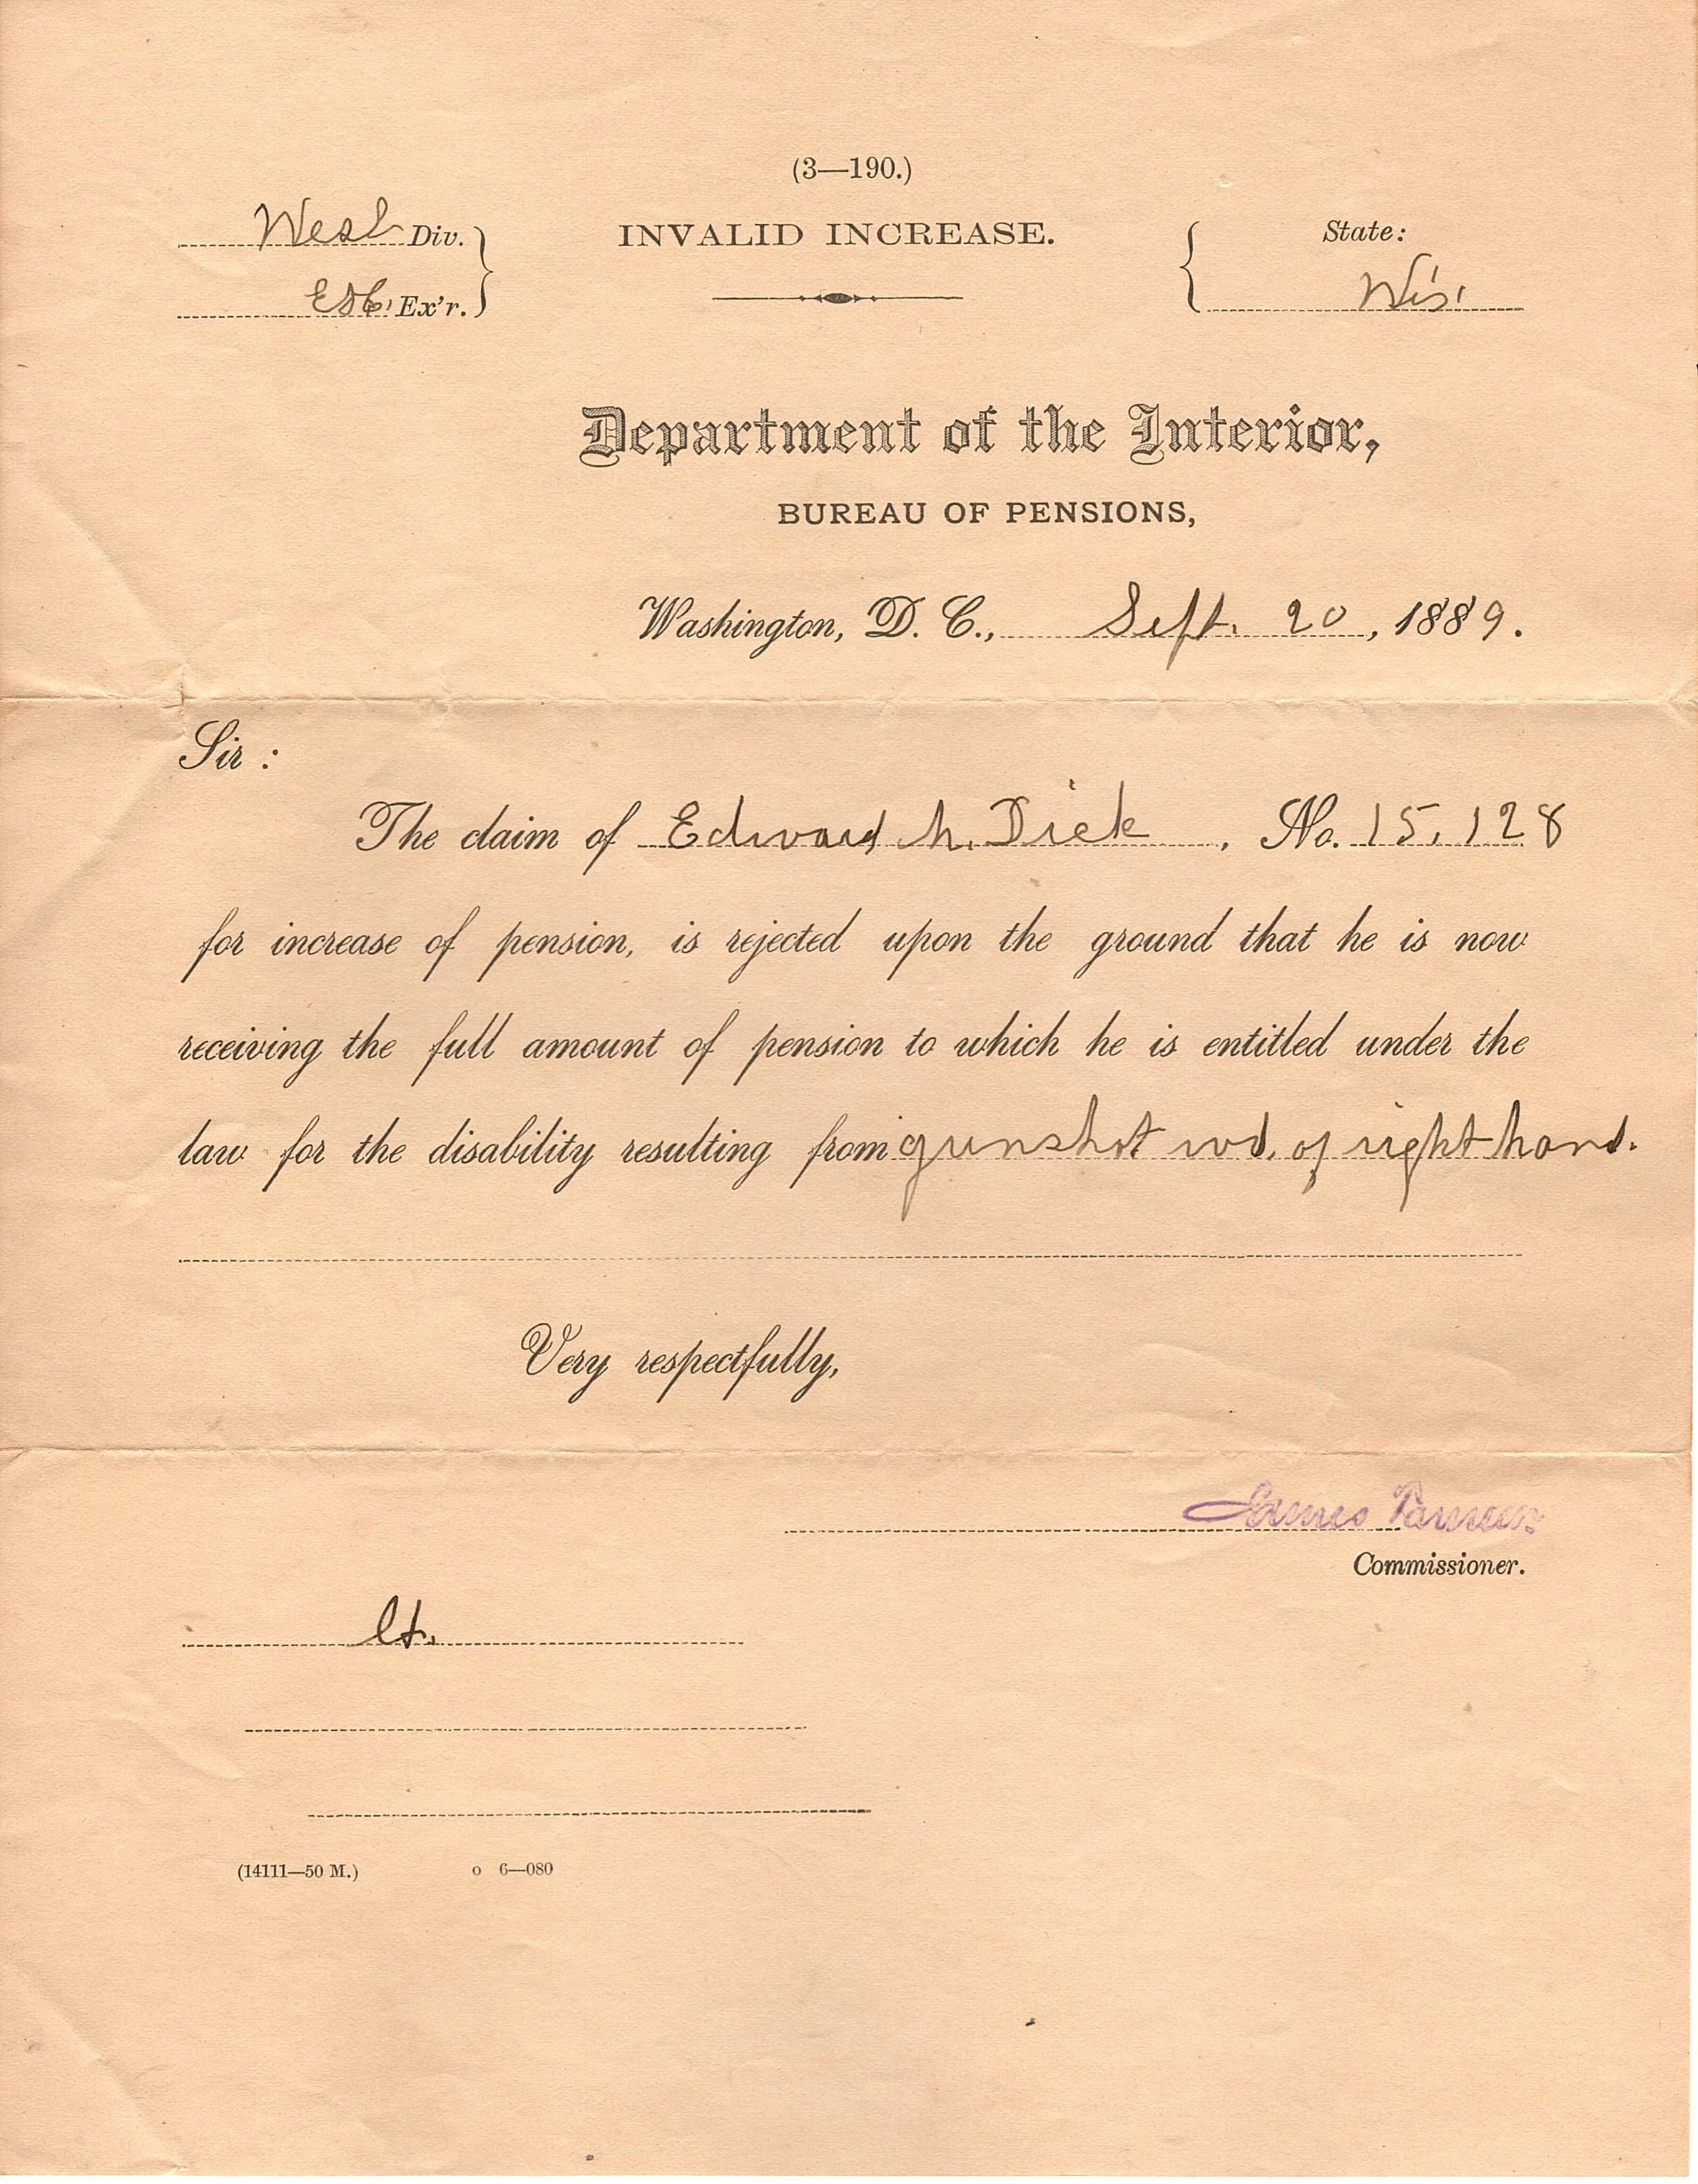 (3—190.)
West Div.
INVALID INCREASE.
State:
Ex'r.
Wis.
Department of the Interior,
BUREAU OF PENSIONS,
Washington, D. C., Sept. 20, 1889.
Sir:
The claim of Edward M. Dick, No. 15,128
for increase of pension, is rejected upon the ground that he is now
receiving the full amount of pension to which he is entitled under the
law for the disability resulting from gunshot wd. of right hand.
Very respectfully,
James Tanner
Commissioner.
(14111—50 M.) o 6—080